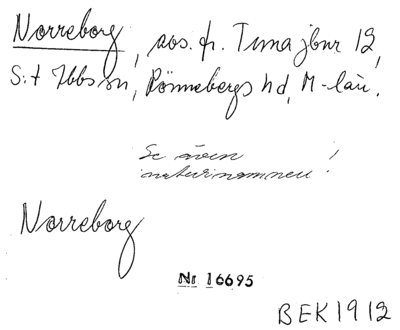 Norreborg, avs. fr. Tuna jbnr 12,
S:t Ibbs sn, Rönnebergs hd, M-län.
Se även
naturnamnen!
Norreborg
Nr 16695
BEK 1912